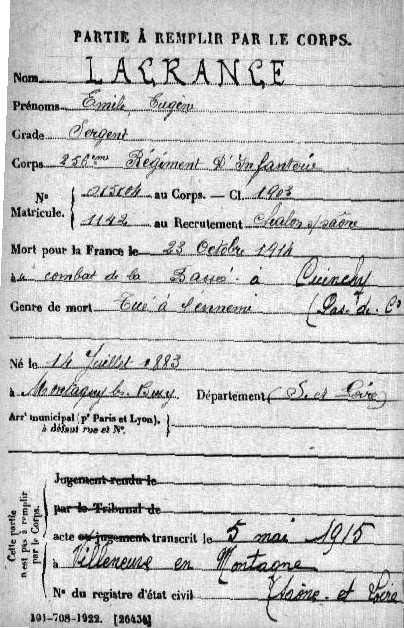 PARTIE À REMPLIR PAR LE CORPS.
Nom LAGRANGE
Prénoms Emile, Eugène
Grade Sergent
Corps 256ème Régiment D'Infanterie
No 015104 au Corps. — Cl. 1903
Matricule. 1142 au Recrutement Chalon s/saône
Mort pour la France le 23 Octobre 1914
à combat de la Bassée à Cuinchy
Genre de mort Tué à l'ennemi (Pas de Cs
Né le 14 Juillet 1883
à Montagny les Buxy Département (S. et Loire)
Arrt municipal (pr Paris et Lyon),
à défaut rue et No.
Cette partie
n'est pas à remplir
par le Corps.
Jugement rendu le
par le Tribunal de
acte ou jugement transcrit le 5 mai 1915
à Villeneuve en Montagne
No du registre d'état civil (Saône et Loire
101-708-1922. [26434]